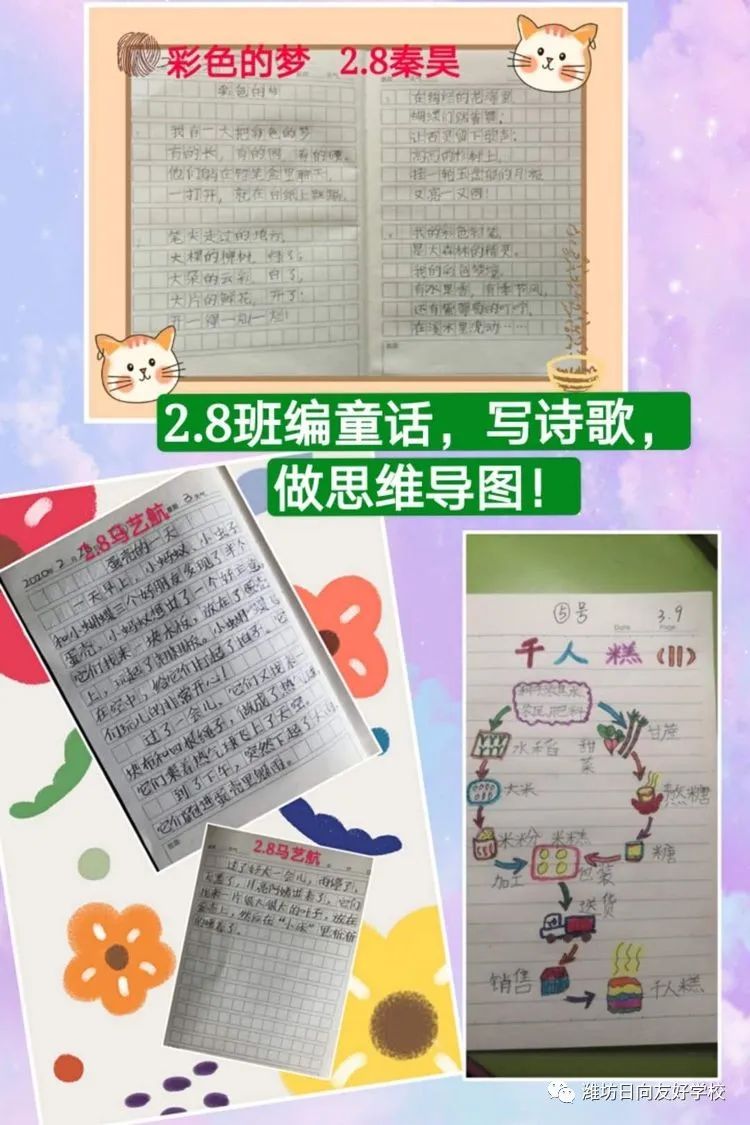 彩色的梦 2.8秦昊
彩色的梦
我有一大把彩色的梦
有的长，有的圆，有的硬。
他们躺在铅笔盒里聊天，
一打开，就在白纸上跳蹦。
笔尖走过的地方，
大棵的柳树，绿了；
大朵的云彩，白了；
大片的鲜花，开了；
蝴蝶们踏着
让舌尖留下歌声；
又亮一又圆！
我的彩色铅笔，
是大森林的精灵。
我的彩色梦境，
有水果香，有季节风，
还有紫葡萄的叮咛，
在溪水里流动……
2.8班编童话，写诗歌，
做思维导图！
2.8马艺航
2020年2月
蛋壳的一天
一天早上，小蚂蚁、小虫子
和小蝴蝶三个好朋友发现了半个
蛋壳，小蚂蚁想出了一个好主意，
它们找来一块木板，放在了蛋壳
上，玩起了跷跷板。小蝴蝶飞
在空中，给它们打起了拍子。它
们玩儿的非常开心！
过了一会儿，它们又找来一
块布和四根绳子，做成了热气球，
它们乘着热气球飞上了天空。
到了下午，突然下起了大雨，
它们
2.8马艺航
过了好大一会儿，雨停了，
天黑了，月亮阿姨出来了，它们
找来一片很大很大的叶子，放在
蛋壳上，然后在“小床”里
的睡着了。
⑤号 Date 3.9 Page
千人糕（11）
农民 肥料
水稻 甜菜 甘蔗
大米 熬糖
米粉 米糕 糖
加工 包装
送货
销售 千人糕
潍坊日向友好学校